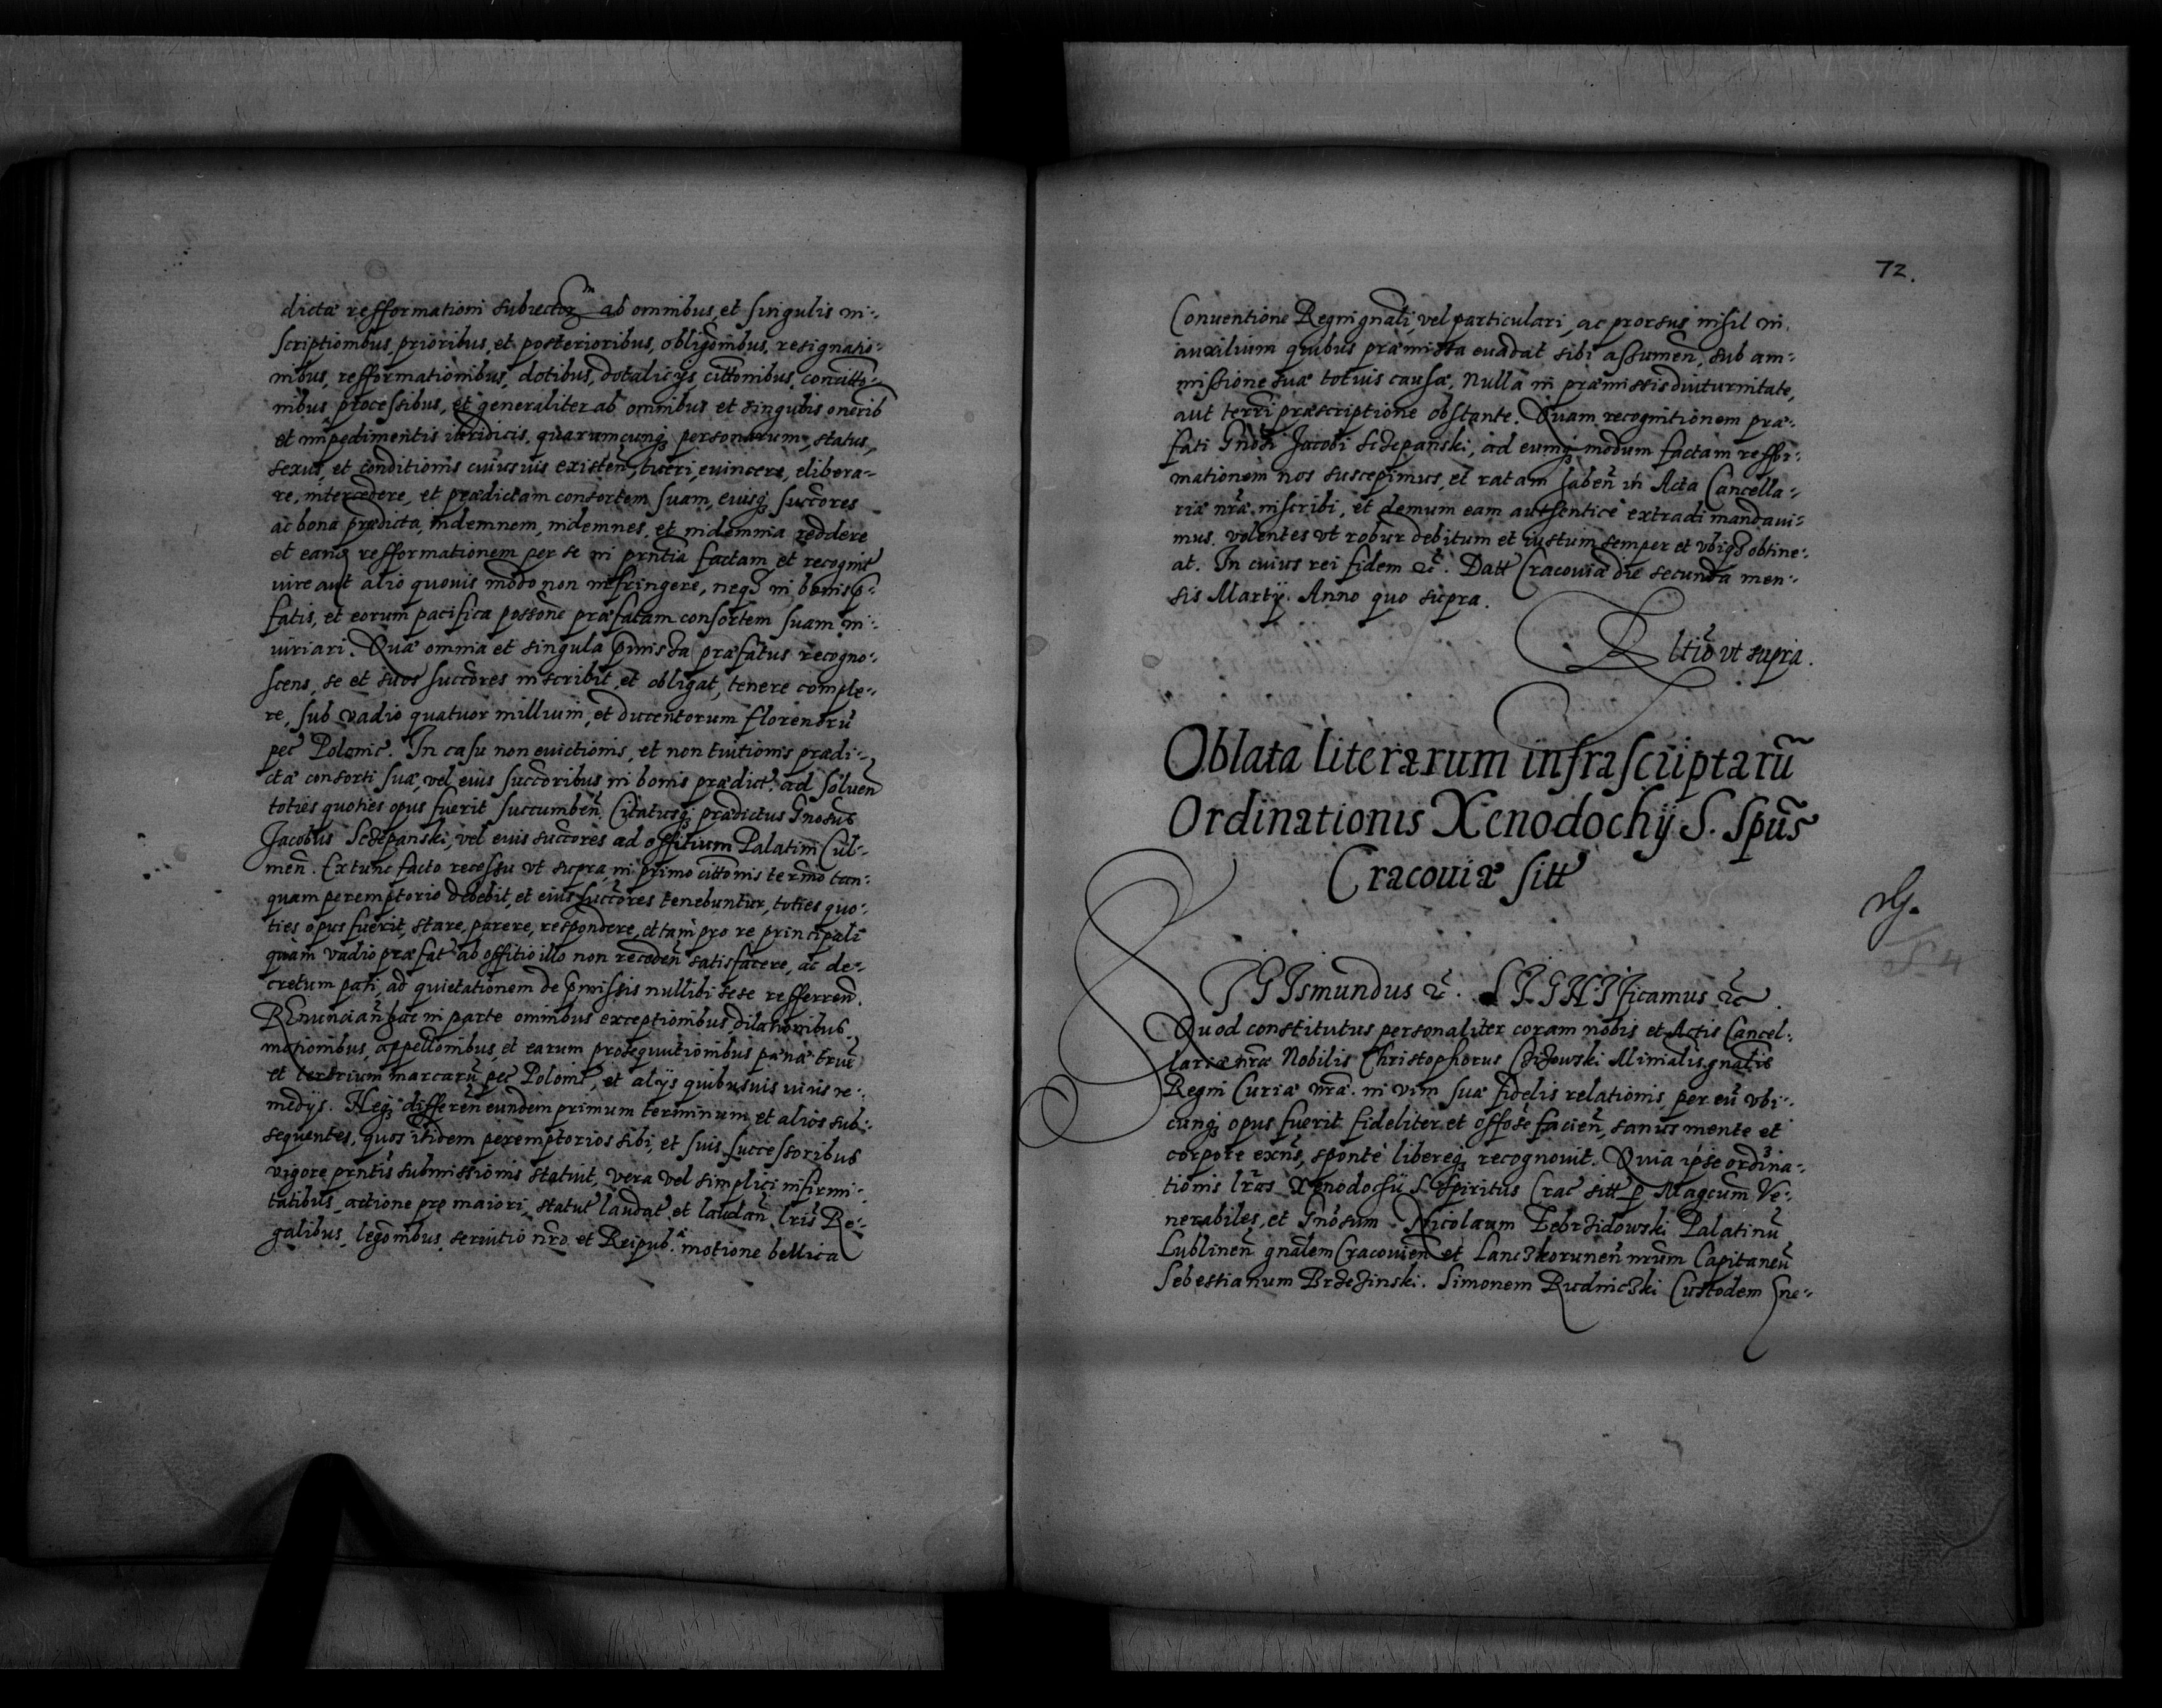 dictæ refformationi subiector ab omnibus, et singulis in-
scriptionibus, prioribus, et posterioribus, obligõnibus, resignatio-
nibus, refformationibus, dotibus, dotalicijs, cittõnibus, concitto-
nibus processibus, et generaliter ab omnibus et singulis onerib
et impedimentis iuridicis, quarumcunq; personarum, status,
sexus, et conditionis cuiusuis existeñ, tueri, euincere, elibera-
re, intercedere, et prædictam consortem suam, eiusq; succores
ac bona prædicta, indemnem, indemnes, et indemnia reddere
et eanq; refformationem per se in prñtia factam, et recognit
uire aut alio quouis modo non infringere, neq; in bonis p-
fatis, et eorum pacifica possone præfatam consortem suam in-
iuriari. Quæ omnia et singula pmissa præfatus recogno-
scens, se et suos succores inscribit, et obligat, tenere comple-
re, sub vadio quatuor millium, et ducentorum florenorũ
pec Polonic. In casu non euictionis, et non tuitionis prædi-
ctæ consorti suæ, vel eius succoribus, in bonis prædict. ad soluen
toties quoties opus fuerit succumbeñ. Citatusq; prædictus Gnosus
Jacobus Sczepanski, vel eius succores ad offitium Palatini Cul-
meñ. Extunc facto recessu vt supra, in primo cittonis termo tan-
quam peremptorio debebit, et eius succores tenebuntur, toties quo-
ties opus fuerit, stare, parere, respondere, et tam pro re principali
quàm vadio præfat ab offitio illo non recedeñ satisfacere, ac de-
cretum pati, ad quietationem de pmissis nullibi sese refferreñ.
REnuncian hac in parte omnibus exceptionibus, dilationibus,
motionibus, appellonibus, et earum prosequutionibus pæna trium
et terdrium marcarũ pec Polonic, et alijs quibusuis iuris re-
medijs. Neq; differeñ eundem primum terminum, et alios sub-
sequentes, quos itidem peremptorios sibi, et suis successoribus
vigore prñtis submissionis statuit, vera vel simplici infirmi-
tatibus, actione pro maiori, statut laudat et laudañ lris Re-
galibus, legõnibus, seruitio nro, et Reipub. motione bellica
72.
Conuentione Regni gnali, vel particulari, ac prorsus nihil in
auxilium quibus præmissa euadat sibi assumeñ, sub am-
missione suæ totius causæ. Nulla in præmissis diuturnitate,
aut terrĩ præscriptione obstante. Quam recognitionem præ-
fati Gnosi Jacobi Sczepanski, ad eumq; modum factam reffor-
mationem nos suscepimus, et ratam habeñ in Acta Cancella-
riæ nræ inscribi, et demum eam authenticè extradi mandaui-
mus, volentes vt robur debitum et iustum semper et vbiq; obtine-
at. In cuius rei fidem &c. Datt Cracouiæ die secunda men-
sis Martij. Anno quo supra.
Rltio vt supra.
Oblata literarum infrascriptarũ
Ordinationis Xenodochij S. Spũs
Cracouiæ sitt
SIGIsmundus &c. SIGNIficamus &c.
Quod constitutus personaliter coram nobis et Actis Cancel-
lariæ nræ Nobilis Christophorus Czizowski Minialis gnalis
Regni Curiæ nræ. in vim suæ fidelis relationis per eũ vbi-
cunq; opus fuerit fideliter et offose facieñ, sanus mente et
corpore exns, sponte libereq; recognouit. Quia ipse ordina-
tionis lras Xenodochii S. Spiritus Crac sitt p Magcum Ve-
nerabiles, et Gnosum Nicolaum Zebrzidowski Palatinũ
Lublineñ gnalem Cracouieñ et Lanczkoruneñ nrum Capitaneũ
Sebestianum Brzezinski. Simonem Rudniczki Custodem Gne-